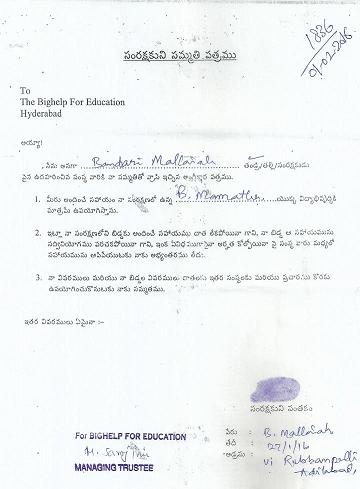 1836
01-02-2016
సంరక్షకుని సమ్మతి పత్రము
To
The Bighelp For Education
Hyderabad
అయ్యా!
నేను అనగా Bandari Mallaiah తండ్రి/తల్లి/సంరక్షకుడు
పైన ఉదహరించిన సంస్థ వారికి నా సమ్మతితో వ్రాసి ఇచ్చిన అంగీకార పత్రము.
1. మీరు అందించే సహాయం నా సంరక్షణలో ఉన్న B. Mamatha యొక్క విద్యాభివృద్ధికి
మాత్రమే ఉపయోగిస్తాను.
2. ఇట్లా నా సంరక్షణలోని బిడ్డకు అందించే సహాయము దాత లేకపోయినా గాని, నా బిడ్డ ఆ సహాయమును
సద్వినియోగము పరచకపోయినా గాని, ఇంక ఏవిధముగానైనా అర్హత కోల్పోయినా పై సంస్థ వారు మధ్యలో
సహాయమును ఆపివేయుటకు నాకు అభ్యంతరము లేదు.
3. నా వివరములు మరియు నా బిడ్డల వివరములు దాతలకు ఇతర సంస్థలకు మరియు ప్రచారము కొరకు
ఉపయోగించుకొనుటకు నాకు సమ్మతము.
ఇతర వివరములు ఏమైనా :-
సంరక్షకుని సంతకం
For BIGHELP FOR EDUCATION
MANAGING TRUSTEE
పేరు : B. Mallaiah
తేదీ : 27/1/16
అడ్రసు : vi Rebbanpalli
Adilabad,